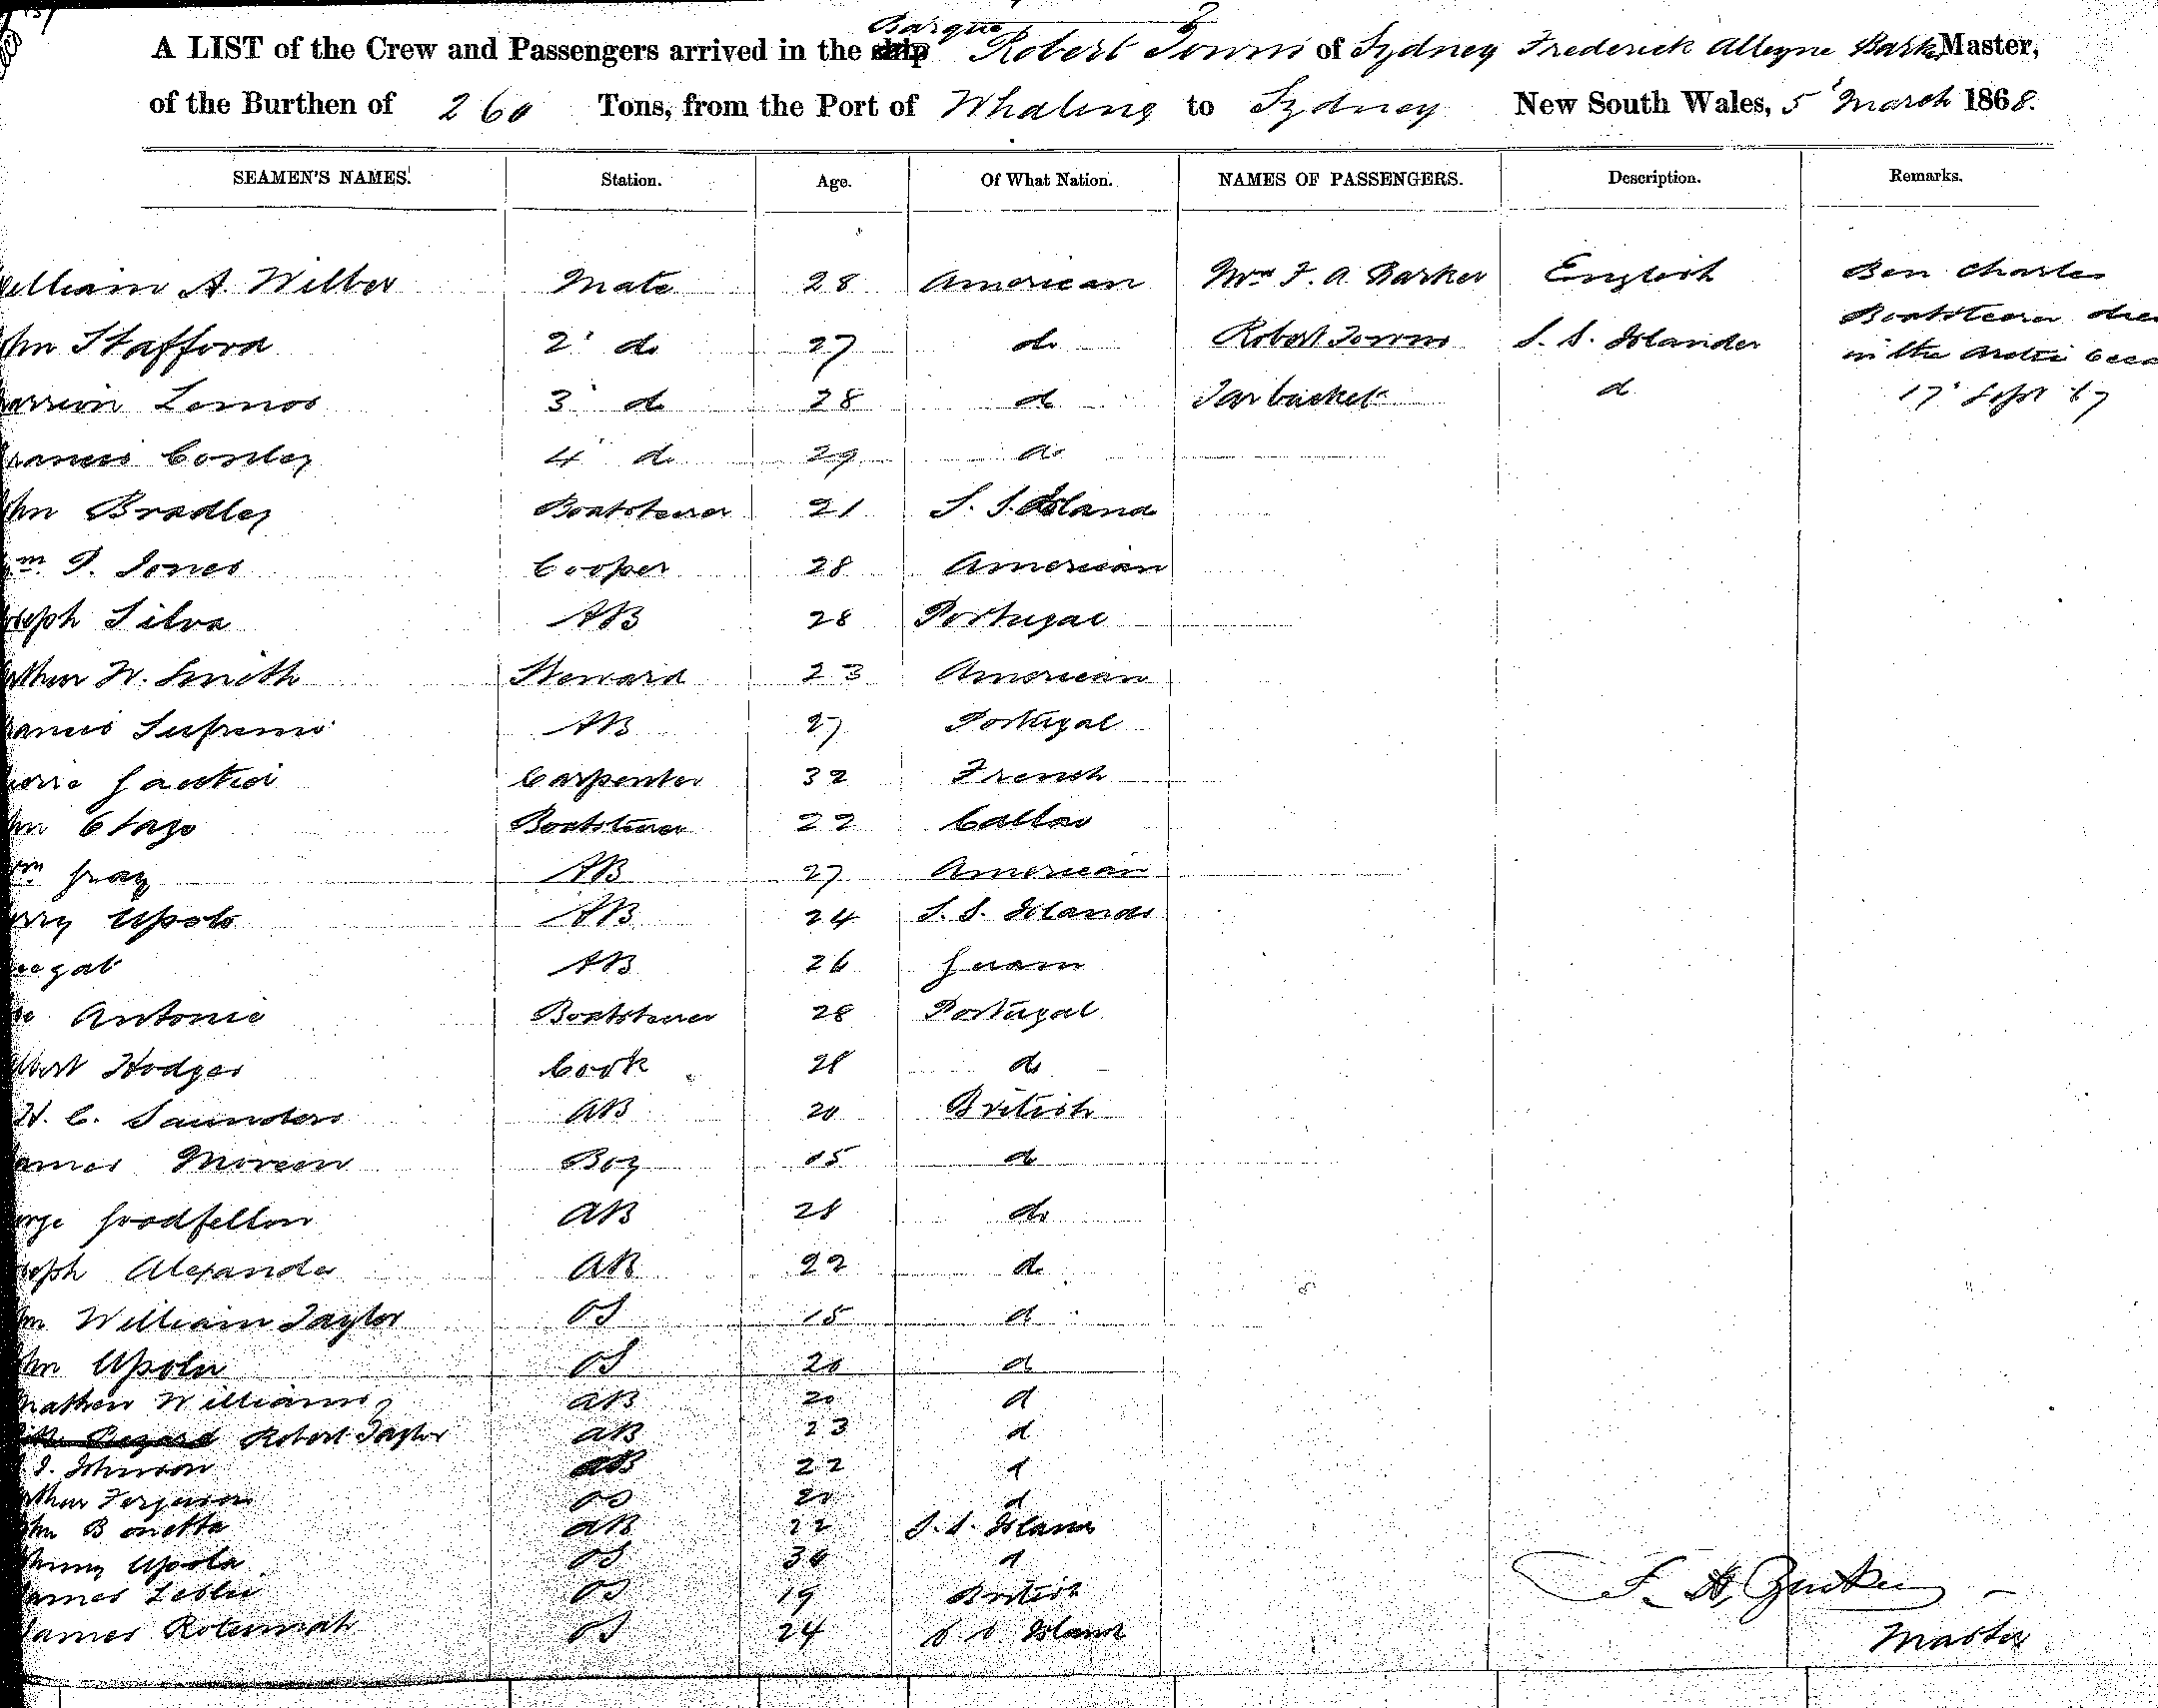 Barque
A LIST of the Crew and Passengers arrived in the ship Robert Towns of Sydney Frederick Alleyne Barker Master,
of the Burthen of 260 Tons, from the Port of Whaling to Sydney New South Wales, 5 March 1868.
SEAMEN'S NAMES. Station. Age. Of What Nation. NAMES OF PASSENGERS. Description. Remarks.
William A. Wilber Mate 28 American Mrs F. A. Barker English Ben Charles
Boatsteerer
hn Stafford 2 do 27 do Robert Towns S. S. Islander in the Arctic
Lemos 3 do 28 d Tarbucket d 17 Sept 67
rancis Conley 4 do 29 do
hn Bradley Boatsteerer 21 S. S. Island
m P. Jones Cooper 28 American
oseph Silva AB 28 Portugal
rthur W. Smith Steward 23 American
rancis AB 27 Portugal
ierre Carpenter 32 French
hn Boatsteerer 22 Callao
m Gray AB 27 American
rry Upolo AB 24 S. S. Islands
AB 26 Guam
Antonie Boatsteerer 28 Portugal
lbert Hodges Cook 28 do
W. C. Saunders AB 20 British
ames Boy 15 d
orge Goodfellow AB 28 do
oseph Alexander AB 22 d
m William Taylor OS 15 d
hn Upolu OS 20 d
Mathew Williams AB 20 d
Robert Taylor AB 23 d
J. Johnson AB 22 d
rthur Ferguson OS 20 d
hn Bonetta AB 22 S. S. Island
Upola OS 30 d
ames Leslie OS 19 British
James Rotumah OS 24 S S Island
F. A. Barker
Master